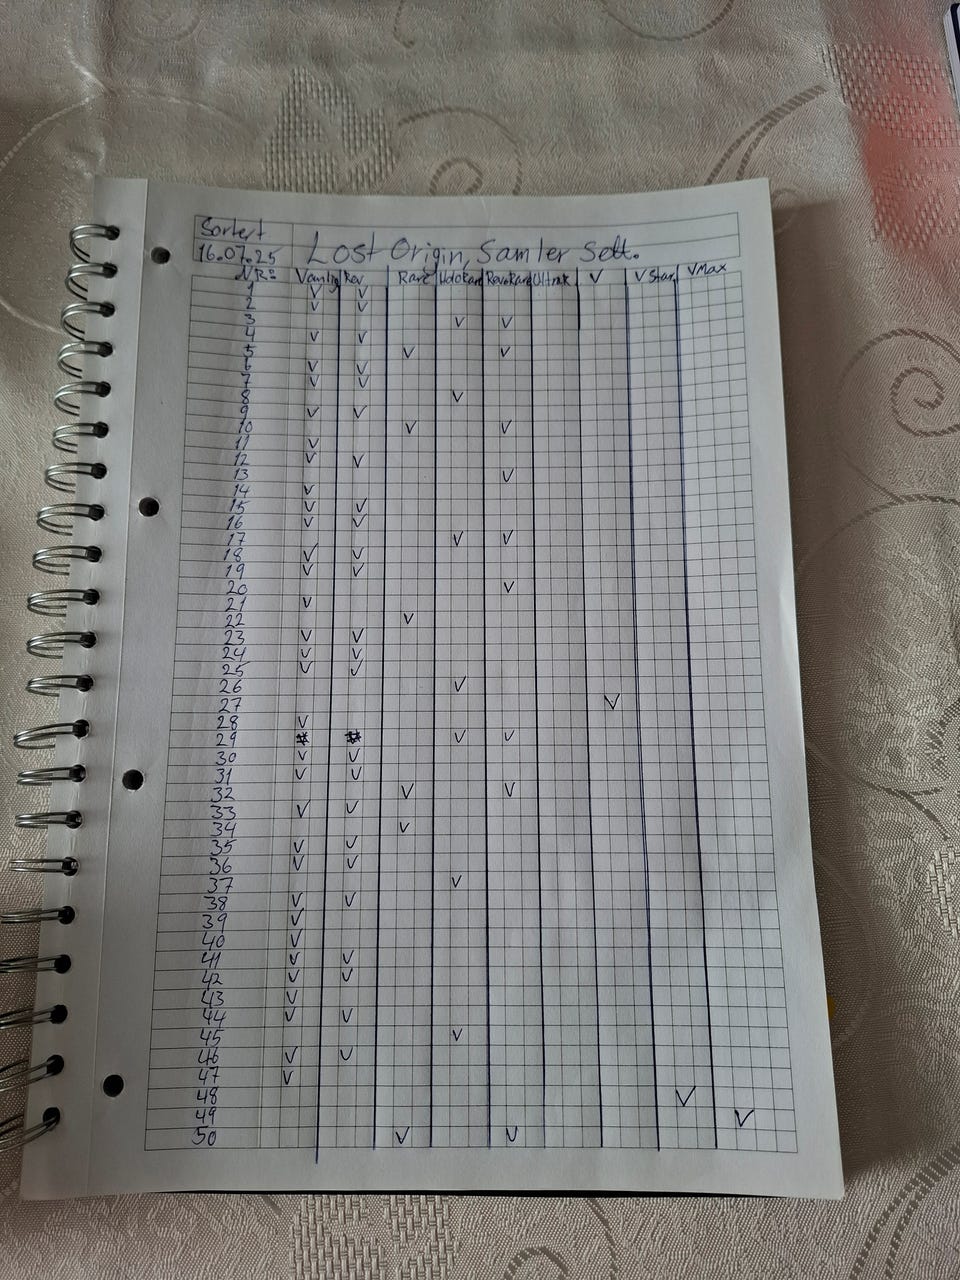 Sortert
16.07.25 Lost Origin, Samler Sett.
NR: Vanlig Rev Rare HoloRare RevRare UltraR V V Star VMax
1 V V
2 V V
3 V V
4 V V
5 V V
6 V V
7 V V
8 V
9 V V
10 V V
11 V
12 V V
13 V
14 V
15 V V
16 V V
17 V V
18 V V
19 V V
20 V
21 V
22 V
23 V V
24 V V
25 V V
26 V
27 V
28 V
29 # # V V
30 V V
31 V V
32 V V
33 V V
34 V
35 V V
36 V V
37 V
38 V V
39 V
40 V
41 V V
42 V V
43 V
44 V V
45 V
46 V V
47 V
48 V
49 V
50 V V